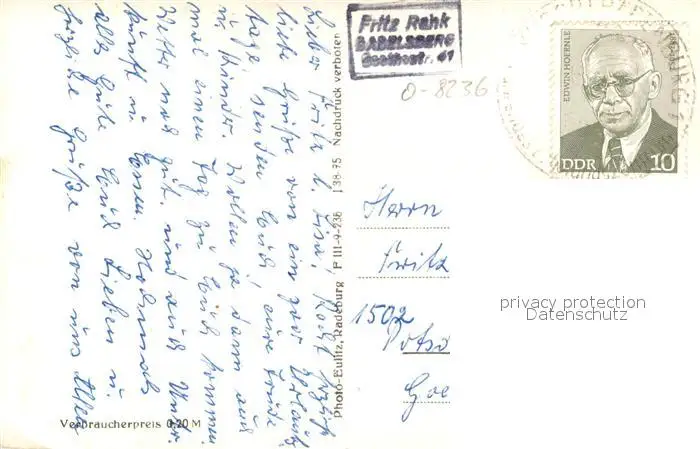 Lieber Fritz u. Lisa! Recht herzl.
liebe Grüße von ein paar Urlaubs-
tage senden Euch, eure Frieda
u. Kinder. Wollen ja dann auch
mal einen Tag zu Euch kommen.
Wetter ist gut. und auch Unter-
kunft u. Essen. Nochmals
alles Gute Euch Lieben u.
herzliche Grüße von uns Allen
Verbraucherpreis 0,20 M
Photo-Eulitz, Radeburg P III-4-236 I 38-75 Nachdruck verboten
Fritz Rehk
BABELSBERG
Goethestr. 41
0-8236
EDWIN HOERNLE
DDR 10
Herrn
Fritz
1502
Potsd
Goe
privacy protection
Datenschutz